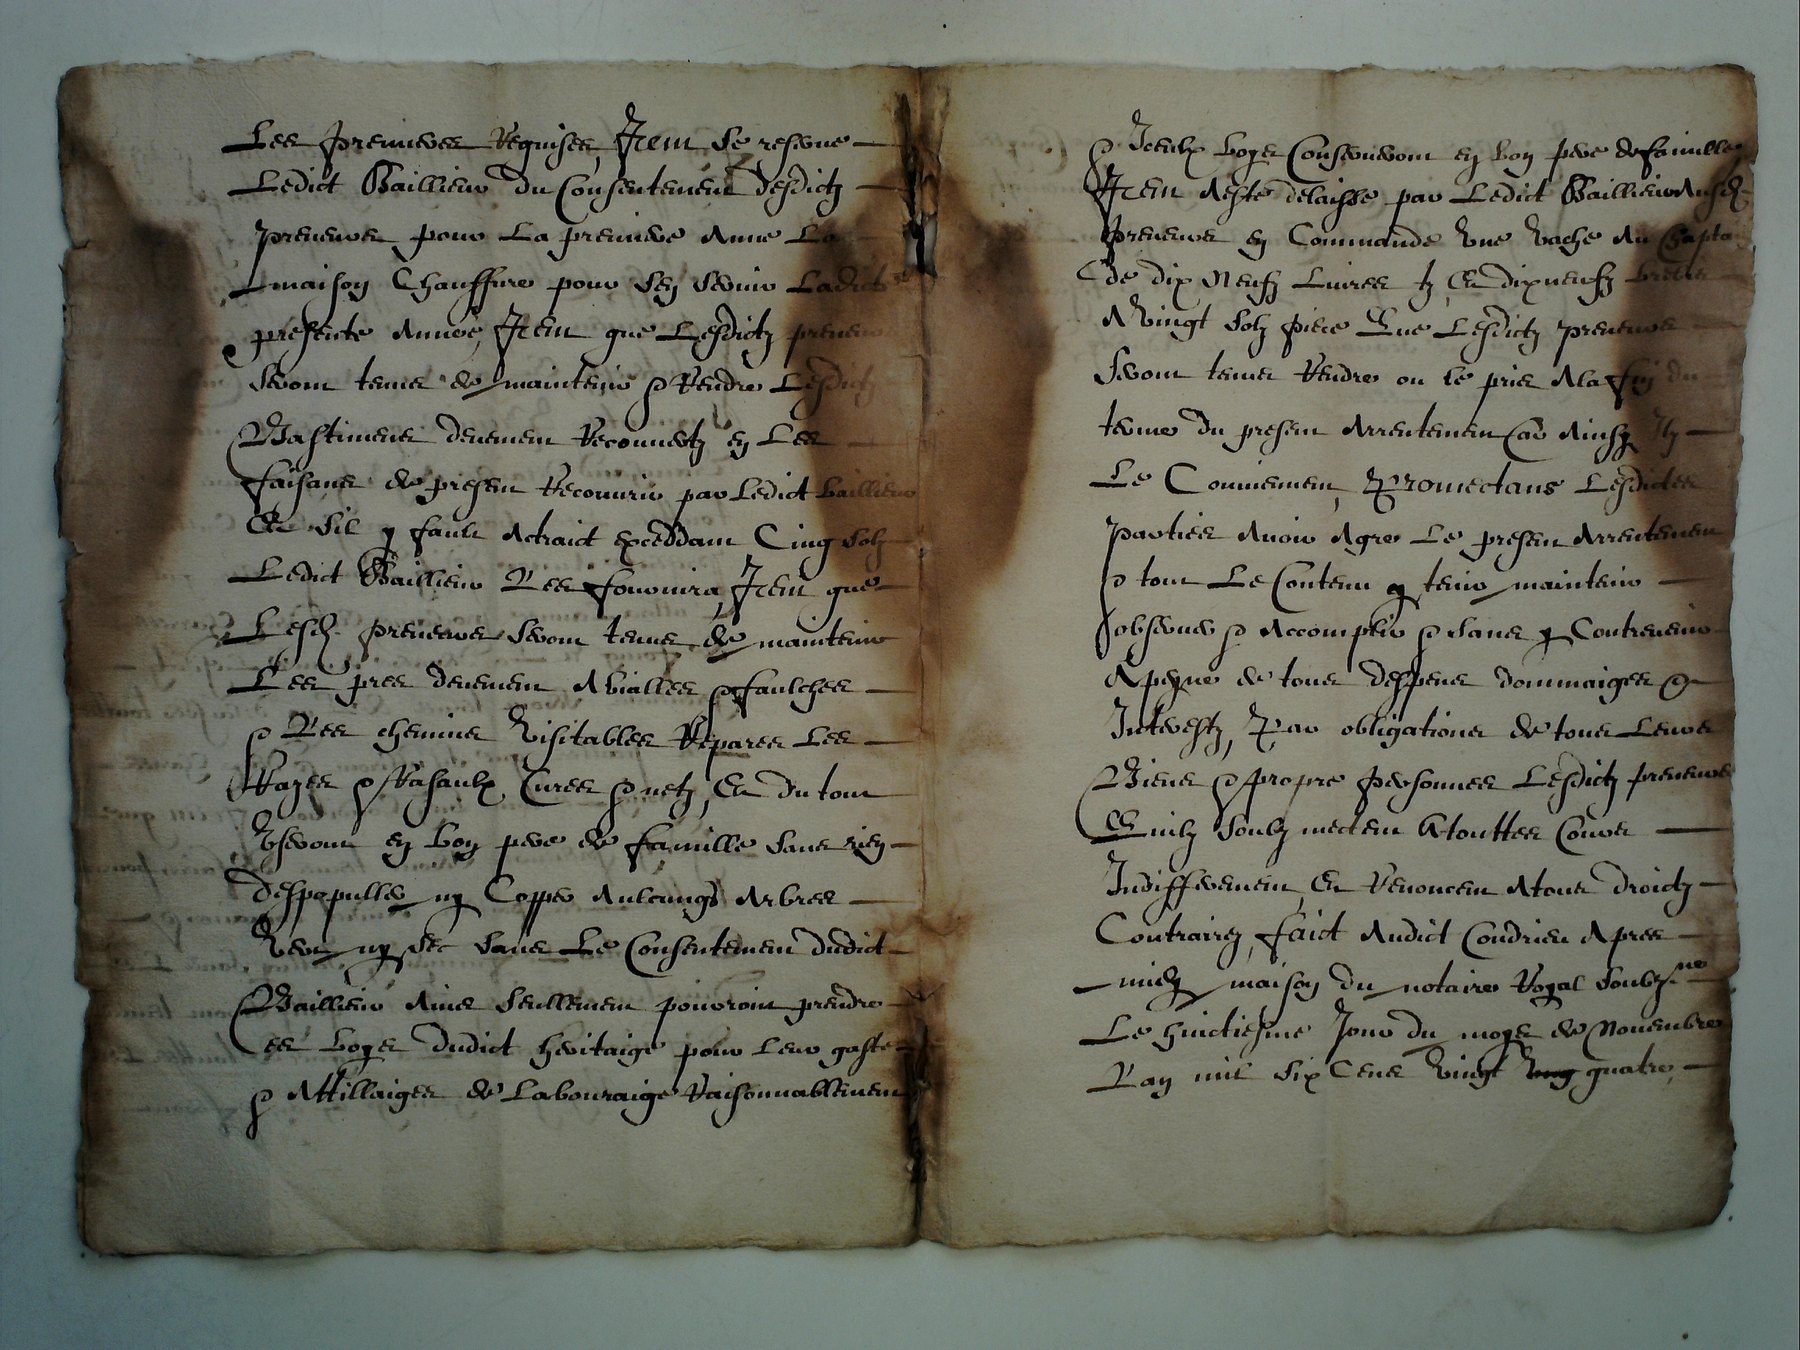 Les preneurs Requises, Item se reserve
Ledict Baillieur du Consentement desdictz
preneurs pour La premiere Annee La
maison Chauffure pour sen servir Ladicte
presente Annee, Item que Lesdictz preneurs
seront tenus de maintenir et Rendre Lesdictz
Bastimens deuement Recouvertz en Les
faisans de present Recouvrir par Ledict bailleur
Et sil y fault Actraict exceddant Cinq solz
Ledict Baillieur Les fournira, Item que
Lesd. preneurs seront tenus de maintenir
Les prez deuement Abiallés et faulchés
et Les chemins visitables Reparer Les
Razes et Rasaulx Curés et netz, Et du tout
Useront en bon pere de famille sans rien
despopuller ny Copper Aulcungs Arbres
Vert ny sec sans Le Consentement dudict
Baillieur Ains seullement pourront prendre
es boys dudict heritaige pour leur gaste
et Attillaiges de Labouraige Raisonnablement
et Iceulx boys Conserveront en bon pere de famille
Item A esté delaissé par Ledict Baillieur Ausd.
preneurs en Commande Une Vache Au Chaptal
de dix Neufz Livres tz Et dix neufz brebis
A Vingt solz piece Que Lesdictz preneurs
seront tenus Rendre ou le pris A la fin du
terme du present Arrentement Car Ainsy Ilz
Le Conviennent, Promectans Lesdictes
parties Avoir Agre Le present Arrentement
et tout Le Contenu y tenir maintenir
observer et Accomplir et sans y Contrevenir
A peyne de tous despens dommaiges et
Interestz, Par obligations de tous Leurs
Biens et propre personnes Lesdictz preneurs
Et quilz soubzmectent A touttes Cours
Indifferement, Et Renoncent A tous droictz
Contraires, faict Audict Condrieu Apres
midy maison du notaire Royal soubz.ne
Le huictiesme Jour du moys de Novembre
L'an mil six Cens Vingt Ung quatre,